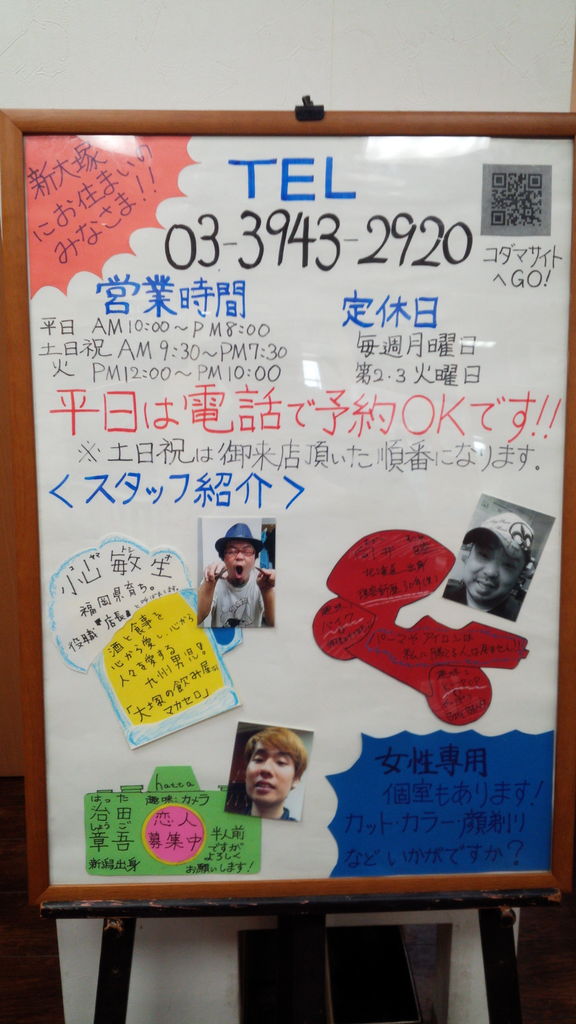 新大塚
にお住まいの
みなさま!!
TEL
03-3943-2920
コダマサイト
へGO!
営業時間
平日 AM10:00～PM8:00
土日祝 AM9:30～PM7:30
火 PM12:00～PM10:00
定休日
毎週月曜日
第2.3火曜日
平日は電話で予約OKです!!
※土日祝は御来店頂いた順番になります。
<スタッフ紹介>
小山 敏生
福岡県育ち。
役職 "店長"
酒と食事を
心から愛し、心から
人々を愛する
九州男児!
「大塚の飲み屋は
マカセロ」
北海道 出身
趣味:
バイク
パーマやアイロンは
私に勝てる人は居ません!!
hatta
はった
趣味:カメラ
治田
しょうご
章吾
新潟出身
恋人
募集中
半人前
ですが
よろしく
お願いします!
女性専用
個室もあります!
カット・カラー・顔剃り
などいかがですか?